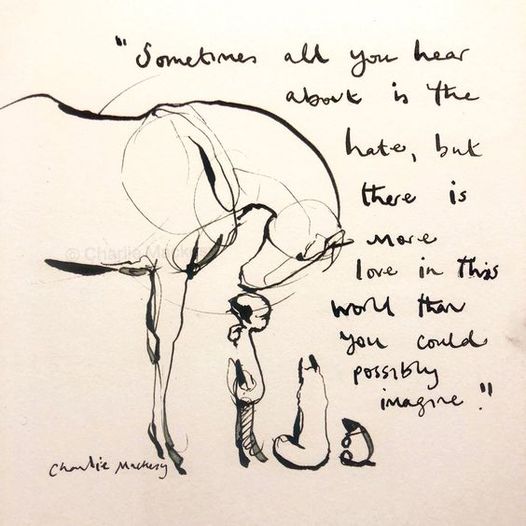 "Sometimes all you hear
about is the
hate, but
there is
more
love in this
world than
you could
possibly
imagine."
© Charlie Mackesy
Charlie Mackesy